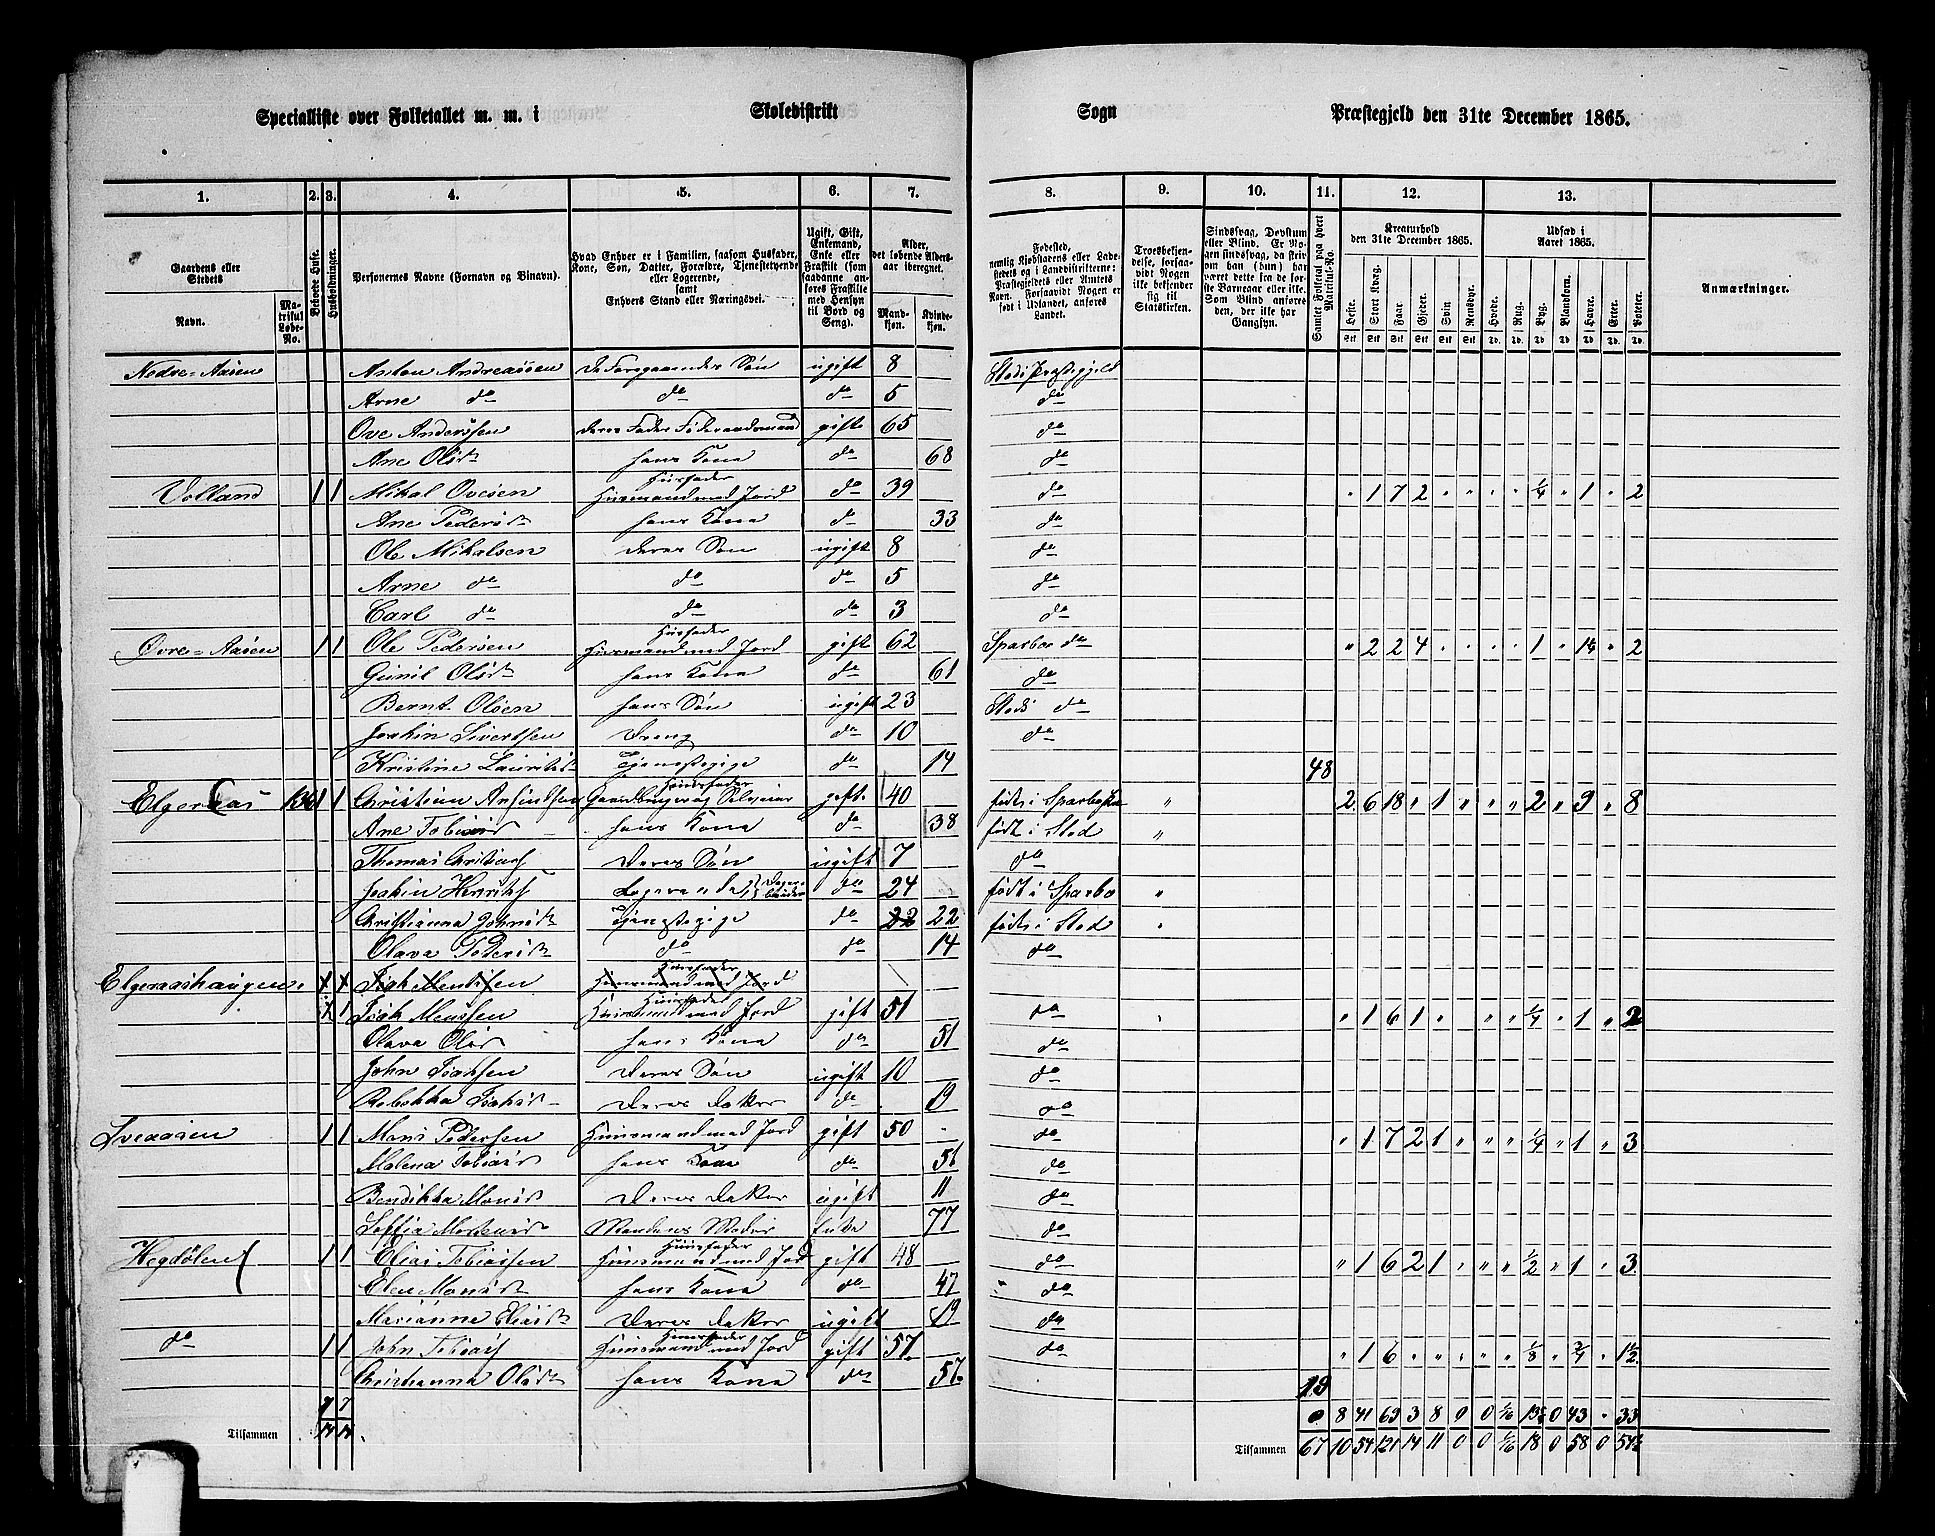 Specialliste over Folketallet m. m. i Skoledistrikt Sogn Præstegjeld den 31te December 1865.
1. 2. 3. 4. 5. 6. 7. 8. 9. 10. 11. 12. 13.
Gaardens eller Stedets Navn. Matrikul Løbe-No. Beboede Huse. Husholdninger. Personernes Navne (Fornavn og Binavn). Hvad Enhver er i Familien, saasom Husfader, Kone, Søn, Datter, Forældre, Tjenestetyende eller Logerende, samt Enhvers Stand eller Næringsvei. Ugift, Gift, Enkemand, Enke eller Fraskilt (som saadanne anføres Fraskilte med Hensyn til Bord og Seng). Alder, det løbende Aldersaar iberegnet. Mandkjøn. Kvindekjøn. Fødested, nemlig Kjøbstadens eller Ladestedets og i Landdistrikterne: Præstegjeldets eller Amtets Navn. Forsaavidt Nogen er født i Udlandet, anføres Landet. Troesbekjendelse, forsaavidt Nogen ikke bekjender sig til Statskirken. Sindssvag, Døvstum eller Blind. Er Nogen sindssvag, da skrives om han (hun) har været dette fra de første Barneaar eller ikke. Som Blind anføres den, der ikke har Gangsyn. Samlet Folketal paa hvert Matrikul-No. Kreaturhold den 31te December 1865. Heste. Stort Kvæg. Faar. Gjeder. Svin Rensdyr. Udsæd i Aaret 1865. Hvede. Rug. Byg. Blandkorn. Havre. Erter. Poteter. Anmærkninger.
Stk Stk Stk Stk Stk Stk Td. Td. Td Td Td Td. Td.
Nedre-Aasen Anton Andreassen De Foregaaendes Søn ugift 8 Stods Præstegjeld
Arne do do do 5 do
Ove Anderssen deres Fader Føderaadsmand gift 65 do
Ane Olsdt hans Kone do 68 do
Volland 1 1 Mikal Ovesen Husfader Husmand med Jord do 39 do " 1 7 2 " " " " ¼ " 1 " 2
Ane Pedersdt hans Kone do 33 do
Ole Mikalsen deres Søn ugift 8 do
Arne do do do 5 do
Carl do do do 3 do
Øvre-Aasen 1 1 Ole Pedersen Husfader Husmand med Jord gift 62 Sparbo do " 2 2 4 " " " " 1 " 1¼ " 2
Gunil Olsdt hans Kone do 61 do
Bernt Olsen hans Søn ugift 23 Stods do
Joakin Sivertsen Dreng do 10 do
Kristine Lauritsdt Tjenestepige do 14 48
Elgeraas 136 1 1 Christian Arfindsen Husfader Gaardbruger og Selveier gift 40 født i Sparboen " 2 6 18 " 1 " " " 2 " 9 " 8
Ane Tobiasd hans Kone do 38 født i Stod "
Thomas Christians deres Søn ugift 7 do
Joakin Henriks Logerende do 24 født i Sparbo "
Christianna Johnsdt Tjenestepige do 22 22 født i Stod "
Olava Pedersdt do do 14 do
Elgeraashaugen Isak Mentsen Husfader Husmand med Jord
1 1 Isak Menssen Husfader Husmand med Jord gift 51 do " " 1 6 1 " " " " ¼ " 1 " 2
Olava Olsd hans Kone do 51 do
John Isaksen Deres Søn ugift 10 do
Rebekka Isaksdt Deres Datter do 19 do
Sveaasen 1 1 Mons Pedersen Husmand med Jord gift 50 do " 1 7 2 1 " " " ¼ " 1 " 3
Malena Tobiasd hans Kone do 51 do
Bendikka Monsd Deres Datter ugift 11 do
Soffia Mortensd Mandens Moder enke 77 do
Hegdølen 1 1 Elias Tobiassen Husfader Husmand med Jord gift 48 do " 1 6 2 1 " " " ½ " 1 " 3
Elen Monsdt hans Kone do 47 do
Marianna Eliasdt Deres Datter ugift 19 do
do 1 1 John Tobias Husfader Husmand med Jord gift 57 do " 1 6 " " " " " ⅛ " ¾ " 1½
Christianna Olsdt hans Kone do 57 19
7 7 0 8 41 69 3 8 0 0 43 " 33
Tilsammen 14 14 Tilsammen 67 10 54 121 14 11 0 0 18 0 58 0 54½